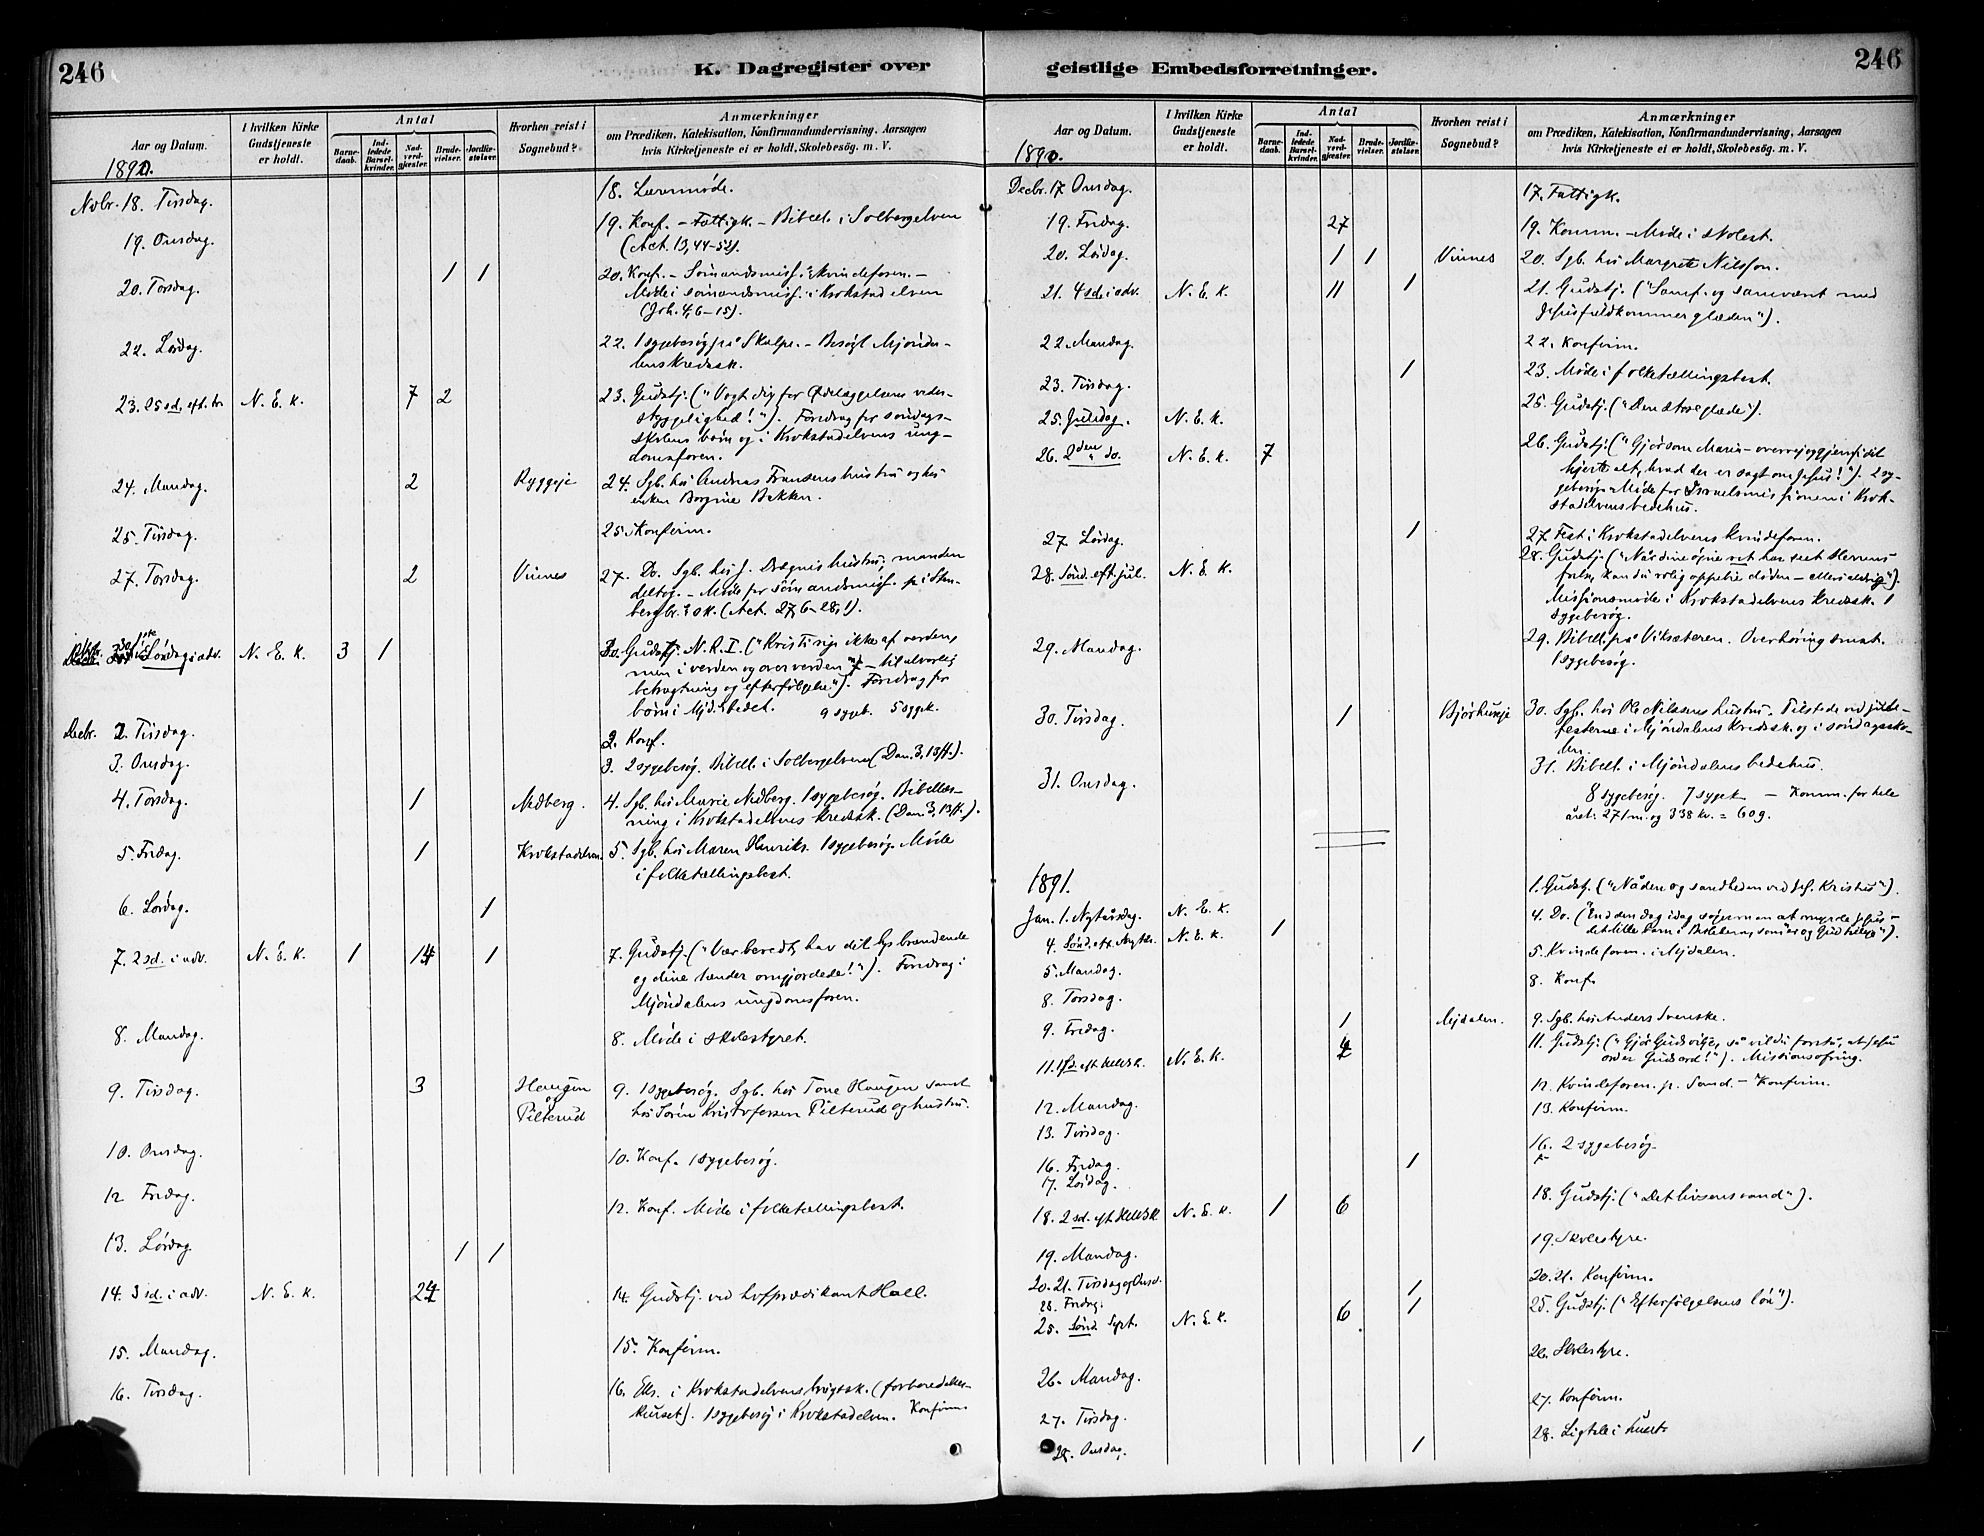 246
K. Dagregister over
Aar og Datum.
I hvilken Kirke Gudstjeneste er holdt.
Antal
Barne-daab.
Ind-ledede Barsel-kvinder.
Nad-verd-gjester.
Brude-vielser.
Jordfæ-stelser.
Hvorhen reist i Sognebud?
Anmærkninger
om Prædiken, Katekisation, Konfirmandundervisning, Aarsagen
hvis Kirketjeneste ei er holdt, Skolebesög. m. V.
1890.
Nobr. 18. Tirsdag. 18. Lærermøde.
19. Onsdag. 19. Konf. – Fattigk. – Bibell. i Solbergelven
(Act. 13,44–52).
20. Torsdag. 1 1 20. Konf. – Sömandsmiss. Kvindeforen. –
Møde i sömandsmiss. i Krokstadelven
(Joh. 4,6–15).
22. Lördag. 22. 1 sygebesög på Skalpe. – Besögt Mjönda-
lens kredssk.
23. 25 sd. eft. tr. N. E. K. 7 2 23. Gudstj. ("Vogt dig for Ødelæggelsens veder-
styggelighed!"). Foredrag for söndags-
skolens børn og i Krokstadelvens ung-
domsforen.
24. Mandag. 2 Ryggeje 24. Sgb. hos Andreas Fransens hustru og hos
enken Borgine Bakken.
25. Tirsdag. 25. Konfirm.
27. Torsdag. 2 Vinnes 27. Do. Sgb. hos J. Drægnis hustru, manden
deltog. – Møde for sömandsmiss. på Sten-
berg br. & ok. (Act. 27,6–28,1).
30 1ste Söndag i adv. N. E. K. 3 1 30. Gudstj. N. R. I. ("Kristi rige ikke af verden,
men i verden og over verden" – til alvorlig
betragtning og efterfölgelse"). Foredrag for
børn i Mjd. bedeh. 9 sygeb. 5 sygek.
Decbr. 2. Tirsdag. 2. Konf.
3. Onsdag. 3. 2 sygebesög. Bibell. i Solbergelven (Dan. 3,13ff.).
4. Torsdag. 1 Nedberg. 4. Sgb. hos Marie Nedberg. 1 sygebesög. Bibellæs-
ning i Krokstadelvens kredssk. (Dan. 3,13ff.).
5. Fredag. 1 Krokstadelven. 5. Sgb. hos Maren Henriks. 1 sygebesög. Møde
i folketællingsbest.
6. Lördag. 1
7. 2 sd. i adv. N. E. K. 1 14 1 7. Gudstj. ("Vær beredt, hav dit lys brændende
og dine lænder omgjordede!"). Foredrag i
Mjöndalens ungdomsforen.
8. Mandag. 8. Møde i skolestyret.
9. Tirsdag. 3 Haugen og Pilterud 9. 1 sygebesög. Sgb. hos Tone Haugen samt
hos Sören Kristofersen Pilterud og hustru.
10. Onsdag. 10. Konf. 1 sygebesög.
12 Fredag. 12. Konf. Møde i folketællingsbest.
13. Lördag. 1 1
14. 3 sd. i adv. N. E. K. 24 14. Gudstj. ved hofprædikant Hall.
15. Mandag. 15. Konfirm.
16. Tirsdag. 16. Eks. i Krokstadelvens brugssk. (forberedelses-
kurset). 1 sygebesög i Krokstadelven. Konfirm.
geistlige Embedsforretninger.
246
Aar og Datum.
I hvilken Kirke Gudstjeneste er holdt.
Antal
Barne-daab.
Ind-ledede Barsel-kvinder.
Nad-verd-gjester.
Brude-vielser.
Jordfæ-stelser.
Hvorhen reist i Sognebud?
Anmærkninger
om Prædiken, Katekisation, Konfirmandundervisning, Aarsagen
hvis Kirketjeneste ei er holdt, Skolebesög. m. V.
1890.
Decbr. 17 Onsdag. 17. Fattigk.
19. Fredag. 27 19. Komm. – Møde i skolest.
20. Lördag. 1 1 Vinnes 20. Sgb. hos Margrete Nilsson.
21. 4 sd. i adv. N. E. K. 11 1 21. Gudstj. ("Samf. og samvært med
Jesus fuldkommer glæden").
22. Mandag. 22. Konfirm.
23. Tirsdag. 1 23. Møde i folketællingsbest.
25. Juledag. N. E. K. 25. Gudstj. ("Den store glæde").
26. 2den do. N. E. K. 7 26. Gudstj. ("Gjör som Maria – overvej og gjem i dit
hjerte alt, hvad der er sagt om Jesus!"). 2 sy-
gebesög. Møde for Israelsmissionen i Krok-
stadelvens bedehus.
27. Lördag. 1 27 Fest i Krokstadelvens kvindeforen.
28. Sönd. eft. jul. N. E. K. 28. Gudstj. ("Når dine øjne ret har seet Herrens
frelse, kan du rolig oppebie döden – ellers aldrig").
Missionsmøde i Krokstadelvens kredssk. 1
sygebesög.
29. Mandag. 29. Bibell. på Vikseteren. Overhöring smst.
1 sygebesög.
30. Tirsdag. 1 Bjørhusje 30. Sgb. hos Ole Nilssens hustru. Tilstede ved jule-
festerne i Mjöndalens kredssk. og i söndagssko-
len.
31. Onsdag. 31. Bibell. i Mjöndalens bedehus.
8 sygebesög. 7 sygek. – Komm. for hele
året: 271 m. og 338 kv. = 609.
1891.
Jan. 1. Nytårsdag. N. E. K. 1. Gudstj. ("Nåden og sandheden ved Jes. Kristus").
4. Sönd. eft. Nytår. N. E. K. 1 4. Do. ("End den dag idag søger man at myrde Jesus –
det lille barn i Betlehem, som er og Gud tillige").
5. Mandag. 5. Kvindeforen. i Mjdalen.
8. Torsdag. 8. Konf.
9. Fredag. 1 Mjdalen. 9. Sgb. hos Anders Svenske.
11. 1 sd. eft. H3K. N. E. K. 11. Gudstj. ("Gjör Guds vilje, så vil du forstå, at Jesu
ord er Guds ord!"). Missionsofring.
12. Mandag. 12. Kvindeforen. p. Sand. – Konfirm.
13. Tirsdag. 13. Konfirm.
16. Fredag. 1 16. 2 sygebesög.
17. Lördag.
18. 2 sd. eft. H3K N. E. K. 1 6 18. Gudstj. ("Det livsens vand").
19. Mandag. 19. Skolestyre.
20. 21. Tirsdag og Onsd. 1 20. 21. Konfirm.
23. Fredag. 1
25. Sönd. Sept. N. E. K. 6 25. Gudstj. ("Efterfölgelsens lön").
26. Mandag. 26. Skolestyre.
27. Tirsdag. 27. Konfirm.
28. Onsdag. 1 28. Ligtale i huset.